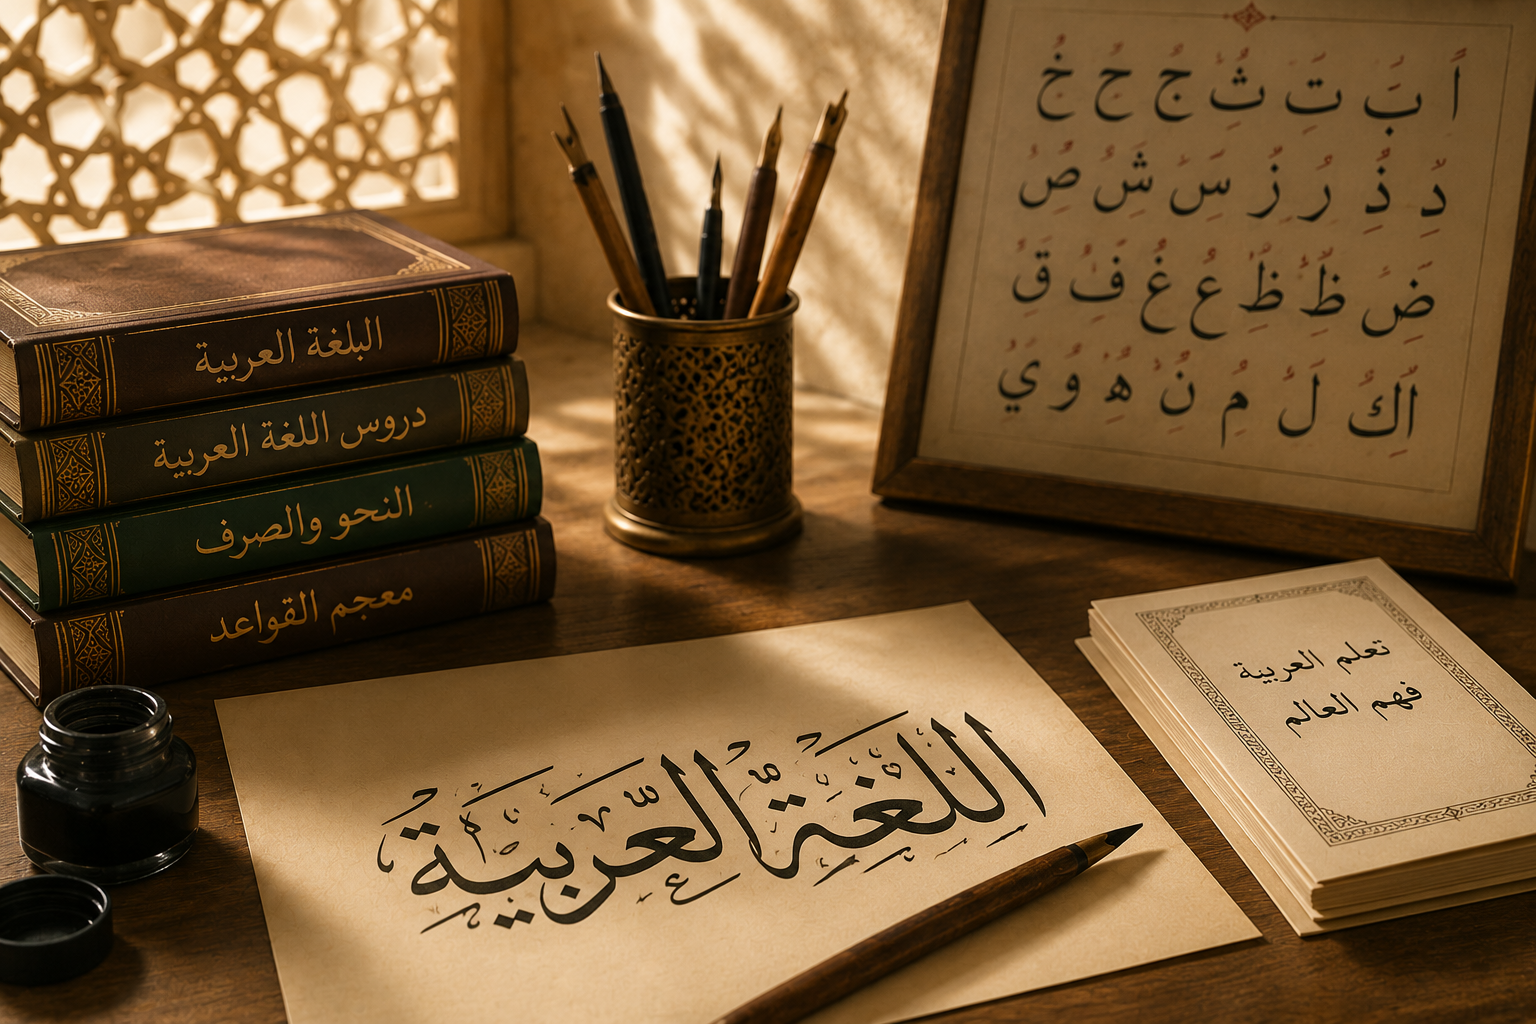 البلغة العربية
دروس اللغة العربية
النحو والصرف
معجم القواعد
اللغة العربية
أ ب ت ث ج ح خ
د ذ ر ز س ش ص
ض ظ ظ ع غ ف ق
اك ل م ن ه و ي
تعلم العربية
فهم العالم